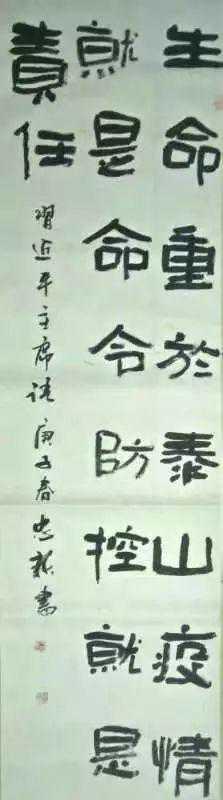 生命重於泰山疫情
就是命令防控就是
責任
習近平主席語庚子春忠新書